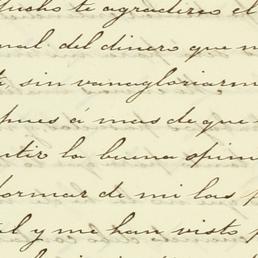 mucho te agradezco el
nal del dinero que m
sin vanagloriarm
pues á mas de que
ntir la buena opin
formar de mi las p
al y me han visto p